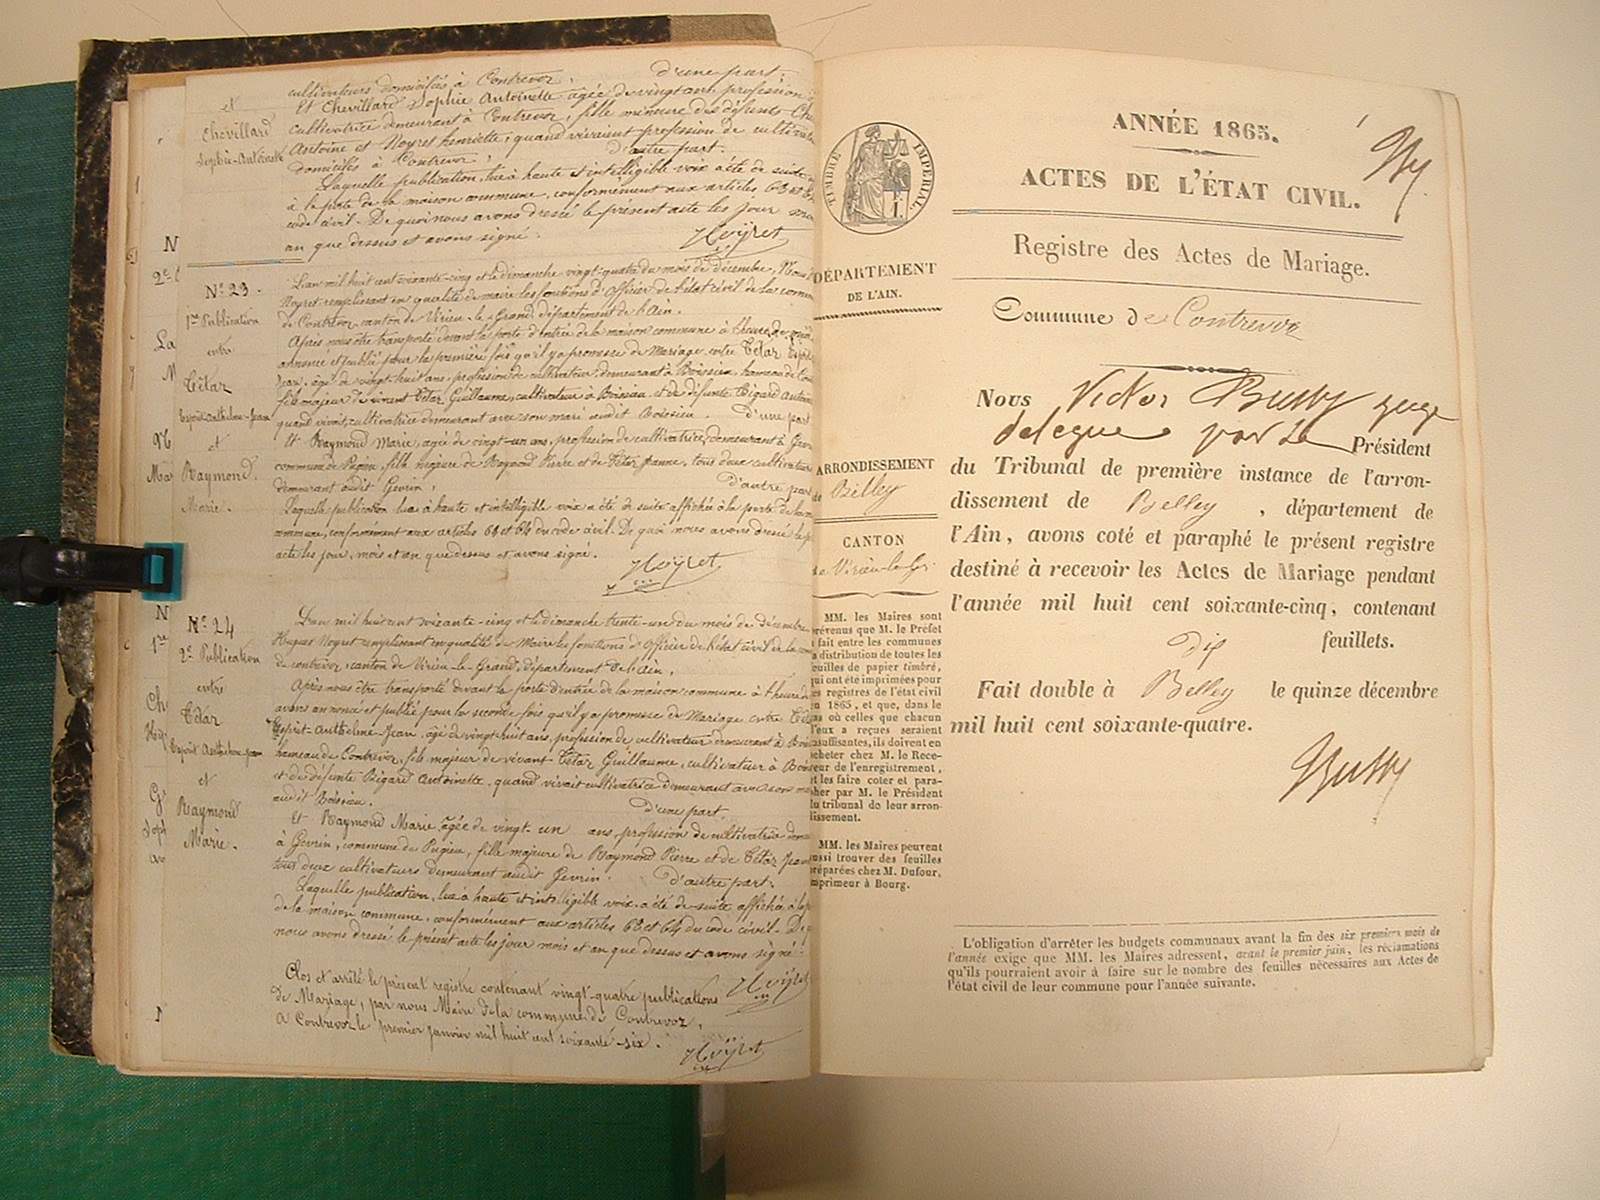 et
Chevillard
Sophie-Antoinette
cultivateurs domiciliés à Contrevoz, d'une part;
Et Chevillard Sophie Antoinette âgée de vingt ans, profession
cultivatrice demeurant à Contrevoz, fille mineure des défunts
Antoine et Noyret henriette, quand vivaient profession de
domiciliés à Contrevoz, d'autre part.
Laquelle publication, lue à haute et intelligible voix a été de suite
à la porte de la maison commune, conformément aux articles 63 et
code civil. De quoi nous avons dressé le présent acte les jour
an que dessus et avons signé.
Noyret
N° 23.
1re Publication
entre
Tétaz
Esprit-Anthelme-Jean
et
Raymond
Marie.
L'an mil huit cent soixante-cinq et le dimanche vingt-quatre du mois de décembre, Nous
Noyret remplissant en qualité de maire les fonctions d'Officier de l'état civil de la
de Contrevoz canton de Virieu-le-Grand, département de l'Ain.
Après nous être transporté devant la porte d'entrée de la maison commune à
annoncé et publié pour la première fois qu'il y a promesse de Mariage entre Tétaz
Jean, âgé de vingt-huit ans, profession de cultivateur, demeurant à Boissieu, hameau de
fils majeur de vivant Tétaz Guillaume, cultivateur à Boissieu, et de défunte Bigard
quand vivait, cultivatrice demeurant avec son mari audit Boissieu, d'une part
Et Raymond Marie, âgée de vingt-un ans, profession de cultivatrice, demeurant à
commune de Pugieu, fille majeure de Raymond Pierre et de Tétaz Jeanne, tous deux cultivateurs
demeurant audit Gevrin, d'autre part
Laquelle publication lue à haute et intelligible voix a été de suite affichée à la porte de la
commune, conformément aux articles 63 et 64 du code civil. De quoi nous avons dressé le
acte les jour, mois et an que dessus et avons signé.
Noyret
N° 24
2e Publication
entre
Tétaz
Esprit Anthelme Jean
et
Raymond
Marie.
L'an mil huit cent soixante-cinq et le dimanche trente-un du mois de décembre
Hugues Noyret remplissant en qualité de Maire les fonctions d'Officier de l'état civil de la
de contrevoz, canton de Virieu-le-Grand, département de l'Ain.
Après nous être transporté devant la porte d'entrée de la maison commune à
avons annoncé et publié pour la seconde fois qu'il y a promesse de Mariage entre
Esprit-Anthelme-Jean, âgé de vingt-huit ans, profession de cultivateur demeurant à
hameau de Contrevoz, fils majeur de vivant Tétaz Guillaume, cultivateur à
et de défunte Bigard Antoinette, quand vivait cultivatrice demeurant avec son
audit Boissieu, d'une part,
Et Raymond Marie, âgée de vingt-un ans, profession de cultivatrice
à Gevrin, commune de Pugieu, fille majeure de Raymond Pierre et de Tétaz
tous deux cultivateurs demeurant audit Gevrin, d'autre part.
Laquelle publication, lue à haute et intelligible voix, a été de suite affichée à la
de la maison commune, conformément aux articles 63 et 64 du code civil. De
nous avons dressé le présent acte les jour mois et an que dessus et avons signé.
Noyret
Clos et arrêté le présent registre contenant vingt-quatre publications
de Mariage, par nous Maire de la commune de Contrevoz,
A Contrevoz le premier janvier mil huit cent soixante-six.
Noyret
TIMBRE IMPÉRIAL
ANNÉE 1865.
ACTES DE L'ÉTAT CIVIL.
Registre des Actes de Mariage.
DÉPARTEMENT
DE L'AIN.
Commune de Contrevoz
ARRONDISSEMENT
de Belley
CANTON
de Virieu-le-Gr.
MM. les Maires sont
prévenus que M. le Préfet
a fait entre les communes
la distribution de toutes les
feuilles de papier timbré,
qui ont été imprimées pour
les registres de l'état civil
en 1865, et que, dans le
cas où celles que chacun
d'eux a reçues seraient
insuffisantes, ils doivent en
acheter chez M. le Rece-
veur de l'enregistrement,
et les faire coter et para-
pher par M. le Président
du tribunal de leur arron-
dissement.
MM. les Maires peuvent
aussi trouver des feuilles
préparées chez M. Dufour,
imprimeur à Bourg.
Nous Victor Bussy juge
délégué par Le Président
du Tribunal de première instance de l'arron-
dissement de Belley, département de
l'Ain, avons coté et paraphé le présent registre
destiné à recevoir les Actes de Mariage pendant
l'année mil huit cent soixante-cinq, contenant
dix feuillets.
Fait double à Belley le quinze décembre
mil huit cent soixante-quatre.
Bussy
L'obligation d'arrêter les budgets communaux avant la fin des six premiers mois de
l'année exige que MM. les Maires adressent, avant le premier juin, les réclamations
qu'ils pourraient avoir à faire sur le nombre des feuilles nécessaires aux Actes de
l'état civil de leur commune pour l'année suivante.